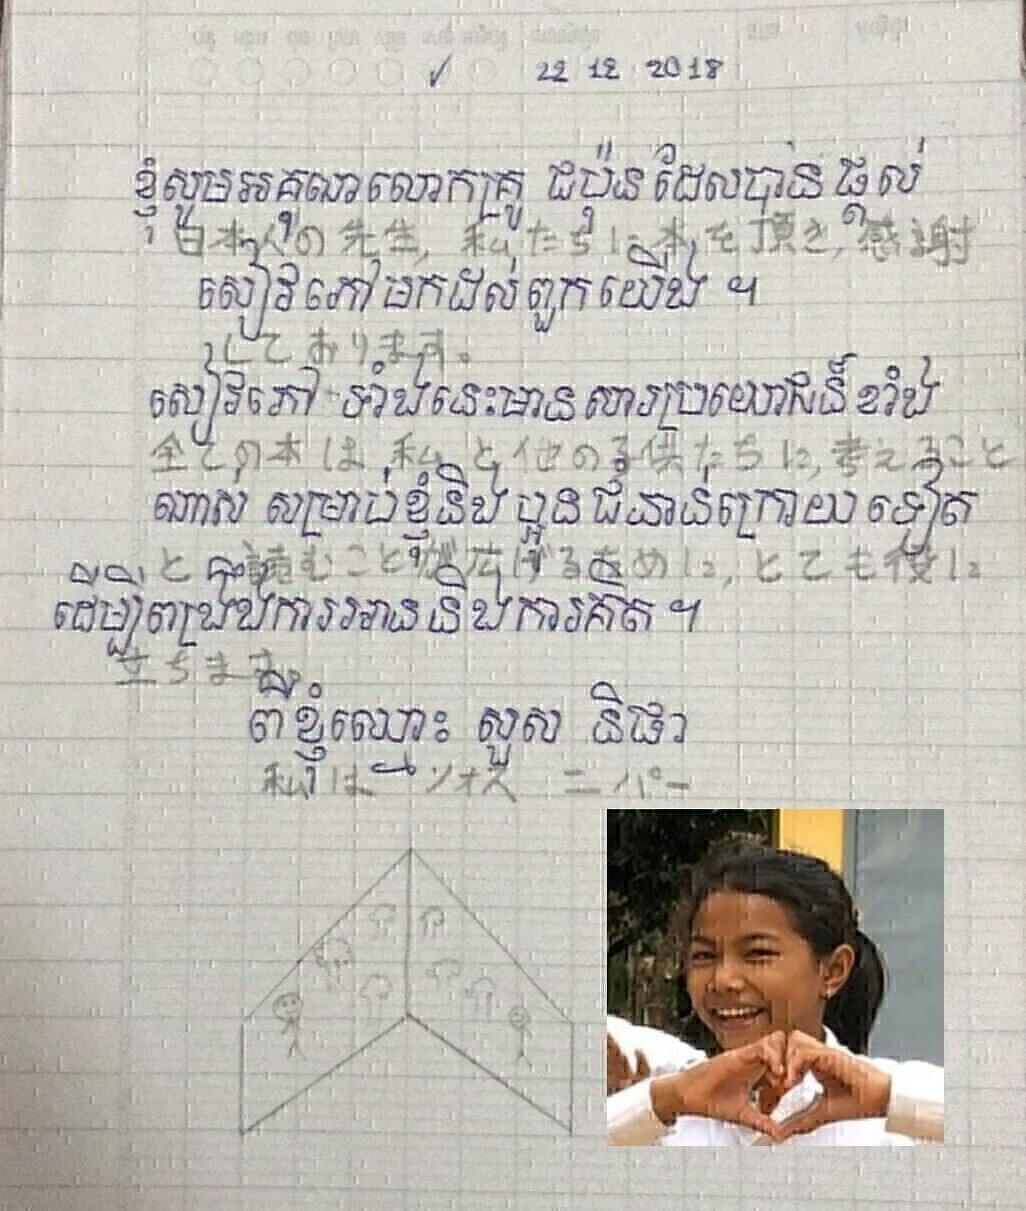 22 12 2018
ខ្ញុំសូមអរគុណលោកគ្រូ ជប៉ុនដែលបានផ្តល់
日本人の先生, 私たちに本を頂き, 感謝
សៀវភៅមកដល់ពួកយើង ។
しております。
សៀវភៅ ទាំងនេះមានសារប្រយោជន៍ខ្លាំង
全ての本は 私と他の子供たちに, 考えること
ណាស់ សម្រាប់ខ្ញុំនិង ប្អូនជំនាន់ក្រោយទៀត
と 読むことが広げるために, とても役に
ដើម្បីពង្រឹងការអាននឹងការគិត ។
立ちます。
ពីខ្ញុំឈ្មោះ សួស និផា
私は ソオス ニパー